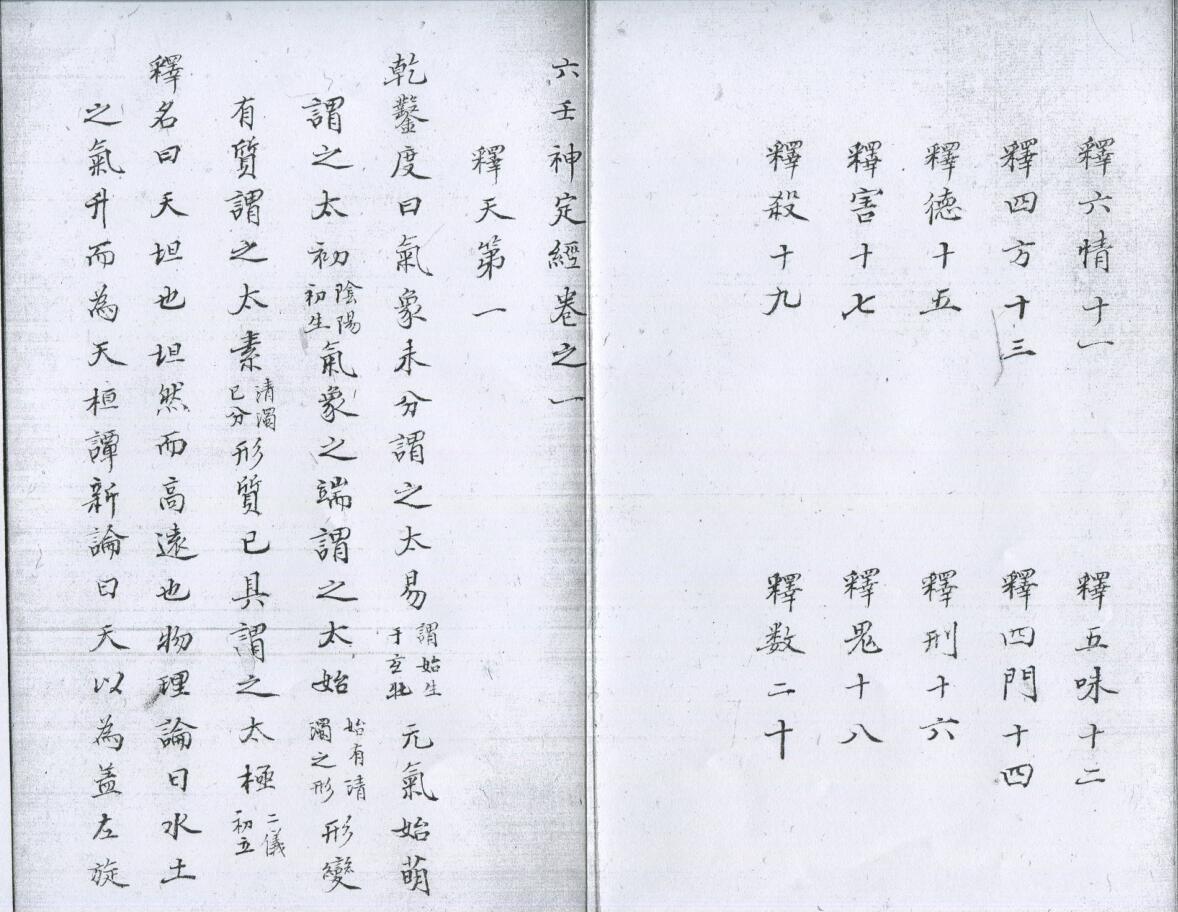 釋六情十一 釋五味十二
釋四方十三 釋四門十四
釋德十五 釋刑十六
釋害十七 釋鬼十八
釋殺十九 釋数二十
六壬神定經卷之一
釋天第一
乾鑿度曰氣象未分謂之太易謂始生于玄牝元氣始萌
謂之太初陰陽初生氣象之端謂之太始始有清濁之形形變
有質謂之太素清濁已分形質已具謂之太極二儀初立
釋名曰天坦也坦然而高遠也物理論曰水土
之氣升而為天桓譚新論曰天以為盖左旋